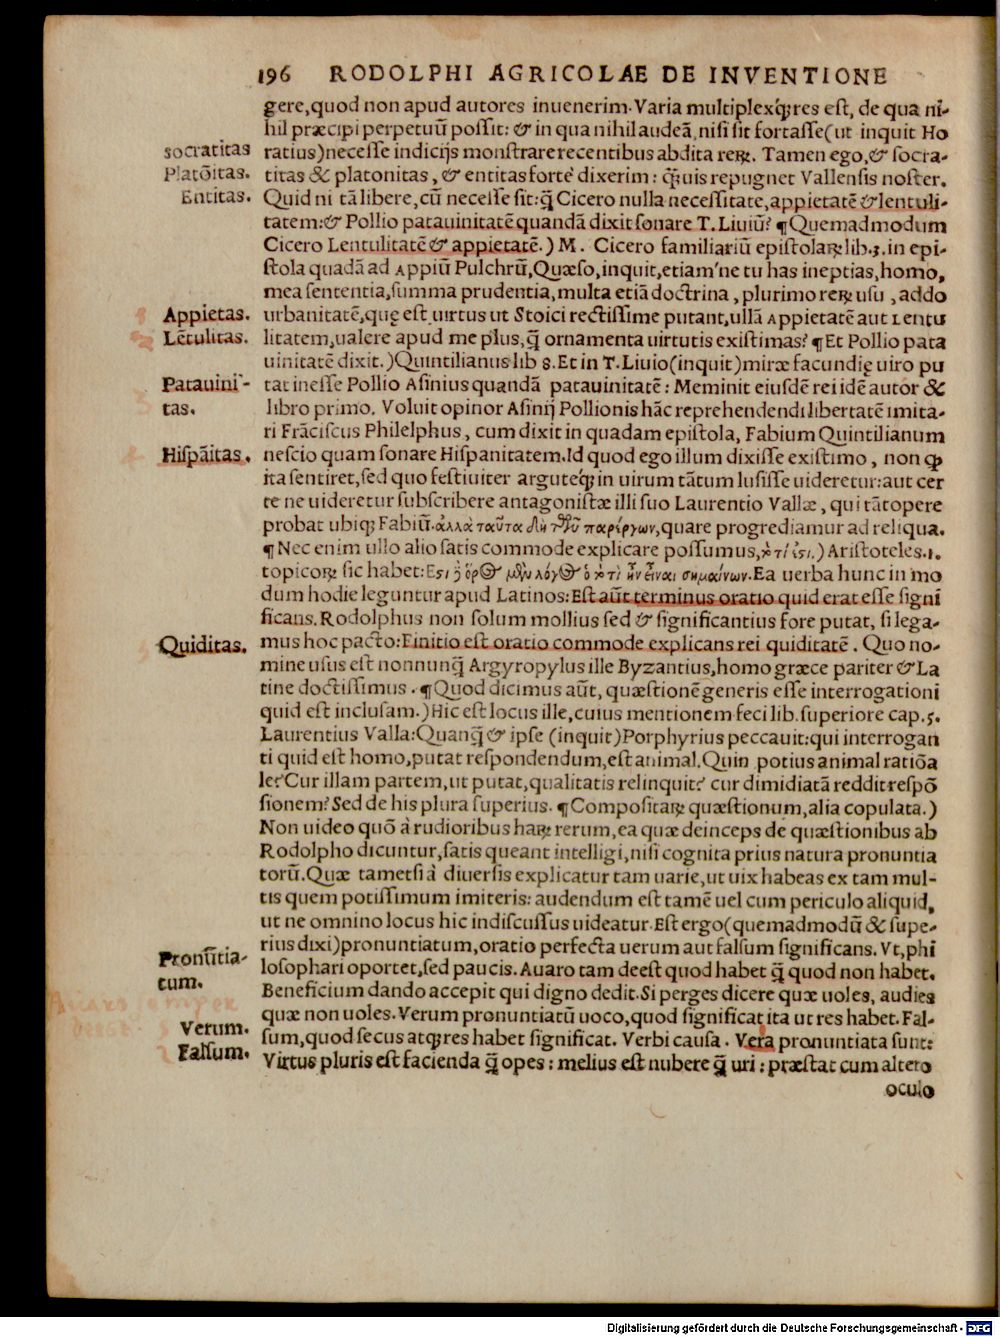 196 RODOLPHI AGRICOLAE DE INVENTIONE
gere, quod non apud autores inuenerim. Varia multiplexq́; res est, de qua ni-
hil præcipi perpetuũ possit: & in qua nihil audeã, nisi sit fortasse (ut inquit Ho
socratitas
ratius) necesse indicijs monstrare recentibus abdita reꝝ. Tamen ego, & socra-
Platõitas.
titas & platonitas, & entitas forte dixerim: q̃uis repugnet Vallensis noster.
Entitas.
Quid ni tã libere, cũ necesse sit: q̃ Cicero nulla necessitate, appietatẽ & lentuli-
tatem: & Pollio patauinitatẽ quandã dixit sonare T. Liuiũ? ¶ Quemadmodum
Cicero Lentulitatẽ & appietatẽ.) M. Cicero familiariũ epistolaꝝ lib. 3. in epi-
stola quadã ad Appiũ Pulchrũ, Quæso, inquit, etiam'ne tu has ineptias, homo,
mea sententia, summa prudentia, multa etiã doctrina, plurimo reꝝ usu, addo
Appietas.
urbanitatẽ, quę est uirtus ut Stoici rectissime putant, ullã Appietatẽ aut Lentu
Lẽtulitas.
litatem, ualere apud me plus, q̃ ornamenta uirtutis existimas? ¶ Et Pollio pata
uinitatẽ dixit.) Quintilianus lib 8. Et in T. Liuio (inquit) miræ facundię uiro pu
Patauini-
tat inesse Pollio Asinius quandã patauinitatẽ: Meminit eiusdẽ rei idẽ autor &
tas.
libro primo. Voluit opinor Asinij Pollionis hãc reprehendendi libertatẽ imita-
ri Frãciscus Philelphus, cum dixit in quadam epistola, Fabium Quintilianum
Hispãitas.
nescio quam sonare Hispanitatem. Id quod ego illum dixisse existimo, non ꝙ
ita sentiret, sed quo festiuiter arguteq́; in uirum tãtum lusisse uideretur: aut cer
te ne uideretur subscribere antagonistæ illi suo Laurentio Vallæ, qui tãtopere
probat ubiq; Fabiũ. ἀλλὰ ταῦτα δὴ τῶν παρέργων, quare progrediamur ad reliqua.
¶ Nec enim ullo alio satis commode explicare possumus, ) Aristoteles. 1.
topicoꝝ sic habet: Ea uerba hunc in mo
dum hodie leguntur apud Latinos: Est aũt terminus oratio quid erat esse signi
ficans. Rodolphus non solum mollius sed & significantius fore putat, si lega-
Quiditas.
mus hoc pacto: Finitio est oratio commode explicans rei quiditatẽ. Quo no-
mine usus est nonnunq̃ Argyropylus ille Byzantius, homo græce pariter & La
tine doctissimus. ¶ Quod dicimus aũt, quæstionẽ generis esse interrogationi
quid est inclusam.) Hic est locus ille, cuius mentionem feci lib. superiore cap. 5.
Laurentius Valla: Quanq̃ & ipse (inquit) Porphyrius peccauit: qui interrogan
ti quid est homo, putat respondendum, est animal. Quin potius animal ratiõa
le? Cur illam partem, ut putat, qualitatis relinquit? cur dimidiatã reddit respõ
sionem? Sed de his plura superius. ¶ Compositaꝝ quæstionum, alia copulata.)
Non uideo quõ à rudioribus haꝝ rerum, ea quæ deinceps de quæstionibus ab
Rodolpho dicuntur, satis queant intelligi, nisi cognita prius natura pronuntia
torũ. Quæ tametsi à diuersis explicatur tam uarie, ut uix habeas ex tam mul-
tis quem potissimum imiteris: audendum est tamẽ uel cum periculo aliquid,
ut ne omnino locus hic indiscussus uideatur. Est ergo (quemadmodũ & supe-
Pronũtia-
rius dixi) pronuntiatum, oratio perfecta uerum aut falsum significans. Vt, phi
tum.
losophari oportet, sed paucis. Auaro tam deest quod habet q̃ quod non habet.
Auaro semper
Beneficium dando accepit qui digno dedit. Si perges dicere quæ uoles, audies
deest
quæ non uoles. Verum pronuntiatũ uoco, quod significat ita ut res habet. Fal-
Verum.
sum, quod secus atq; res habet significat. Verbi causa. Vera pronuntiata sunt:
Falsum.
Virtus pluris est facienda q̃ opes: melius est nubere q̃ uri: præstat cum altero
oculo
Digitalisierung gefördert durch die Deutsche Forschungsgemeinschaft - DFG